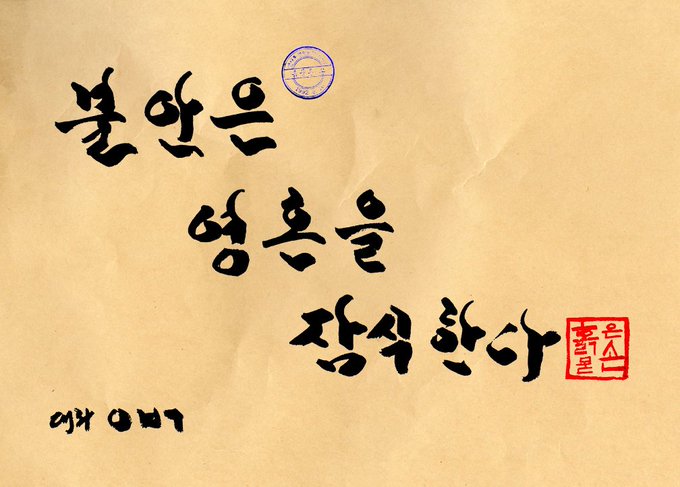 불안은
영혼을
잠식한다